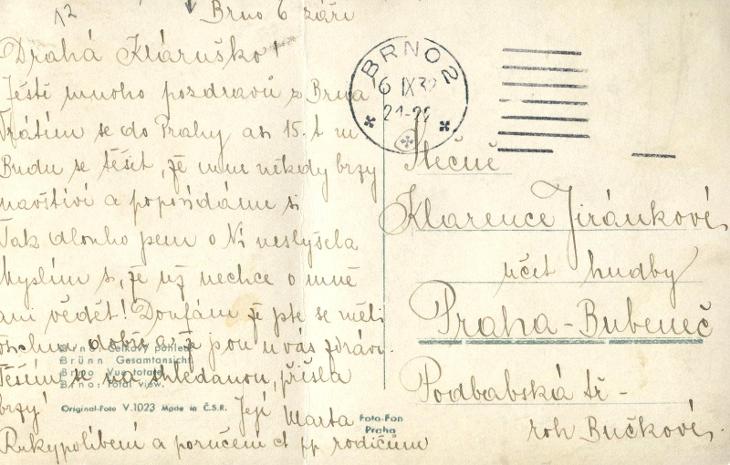 12
Brno 6 září
Drahá Kláruško!
Ještě mnoho pozdravů z Brna
Vrátím se do Prahy as 15. t m
Budu se těšit, že mne někdy brzy
navštíví a popovídáme si
Tak dlouho jsem o Ní neslyšela
Myslím si, že už nechce o mně
ani vědět! Doufám že jste se měli
všichni dobře a že jsou u vás zdrávi.
Těším se na shledanou, přišla
brzy!
Její Marta
Rukypolíbení a poručení ct pp rodičům
Brno: Celkový pohled
Brünn Gesamtansicht
Brno Vue totale
Brno: Total view.
Original-Foto V.1023 Made in Č.S.R.
Foto-Fon
Praha
BRNO 2
6 IX 32
21-22
Slečně
Klarence Jiránkové
učit hudby
Praha-Bubeneč
Podbabská tř-
roh Bučkové.